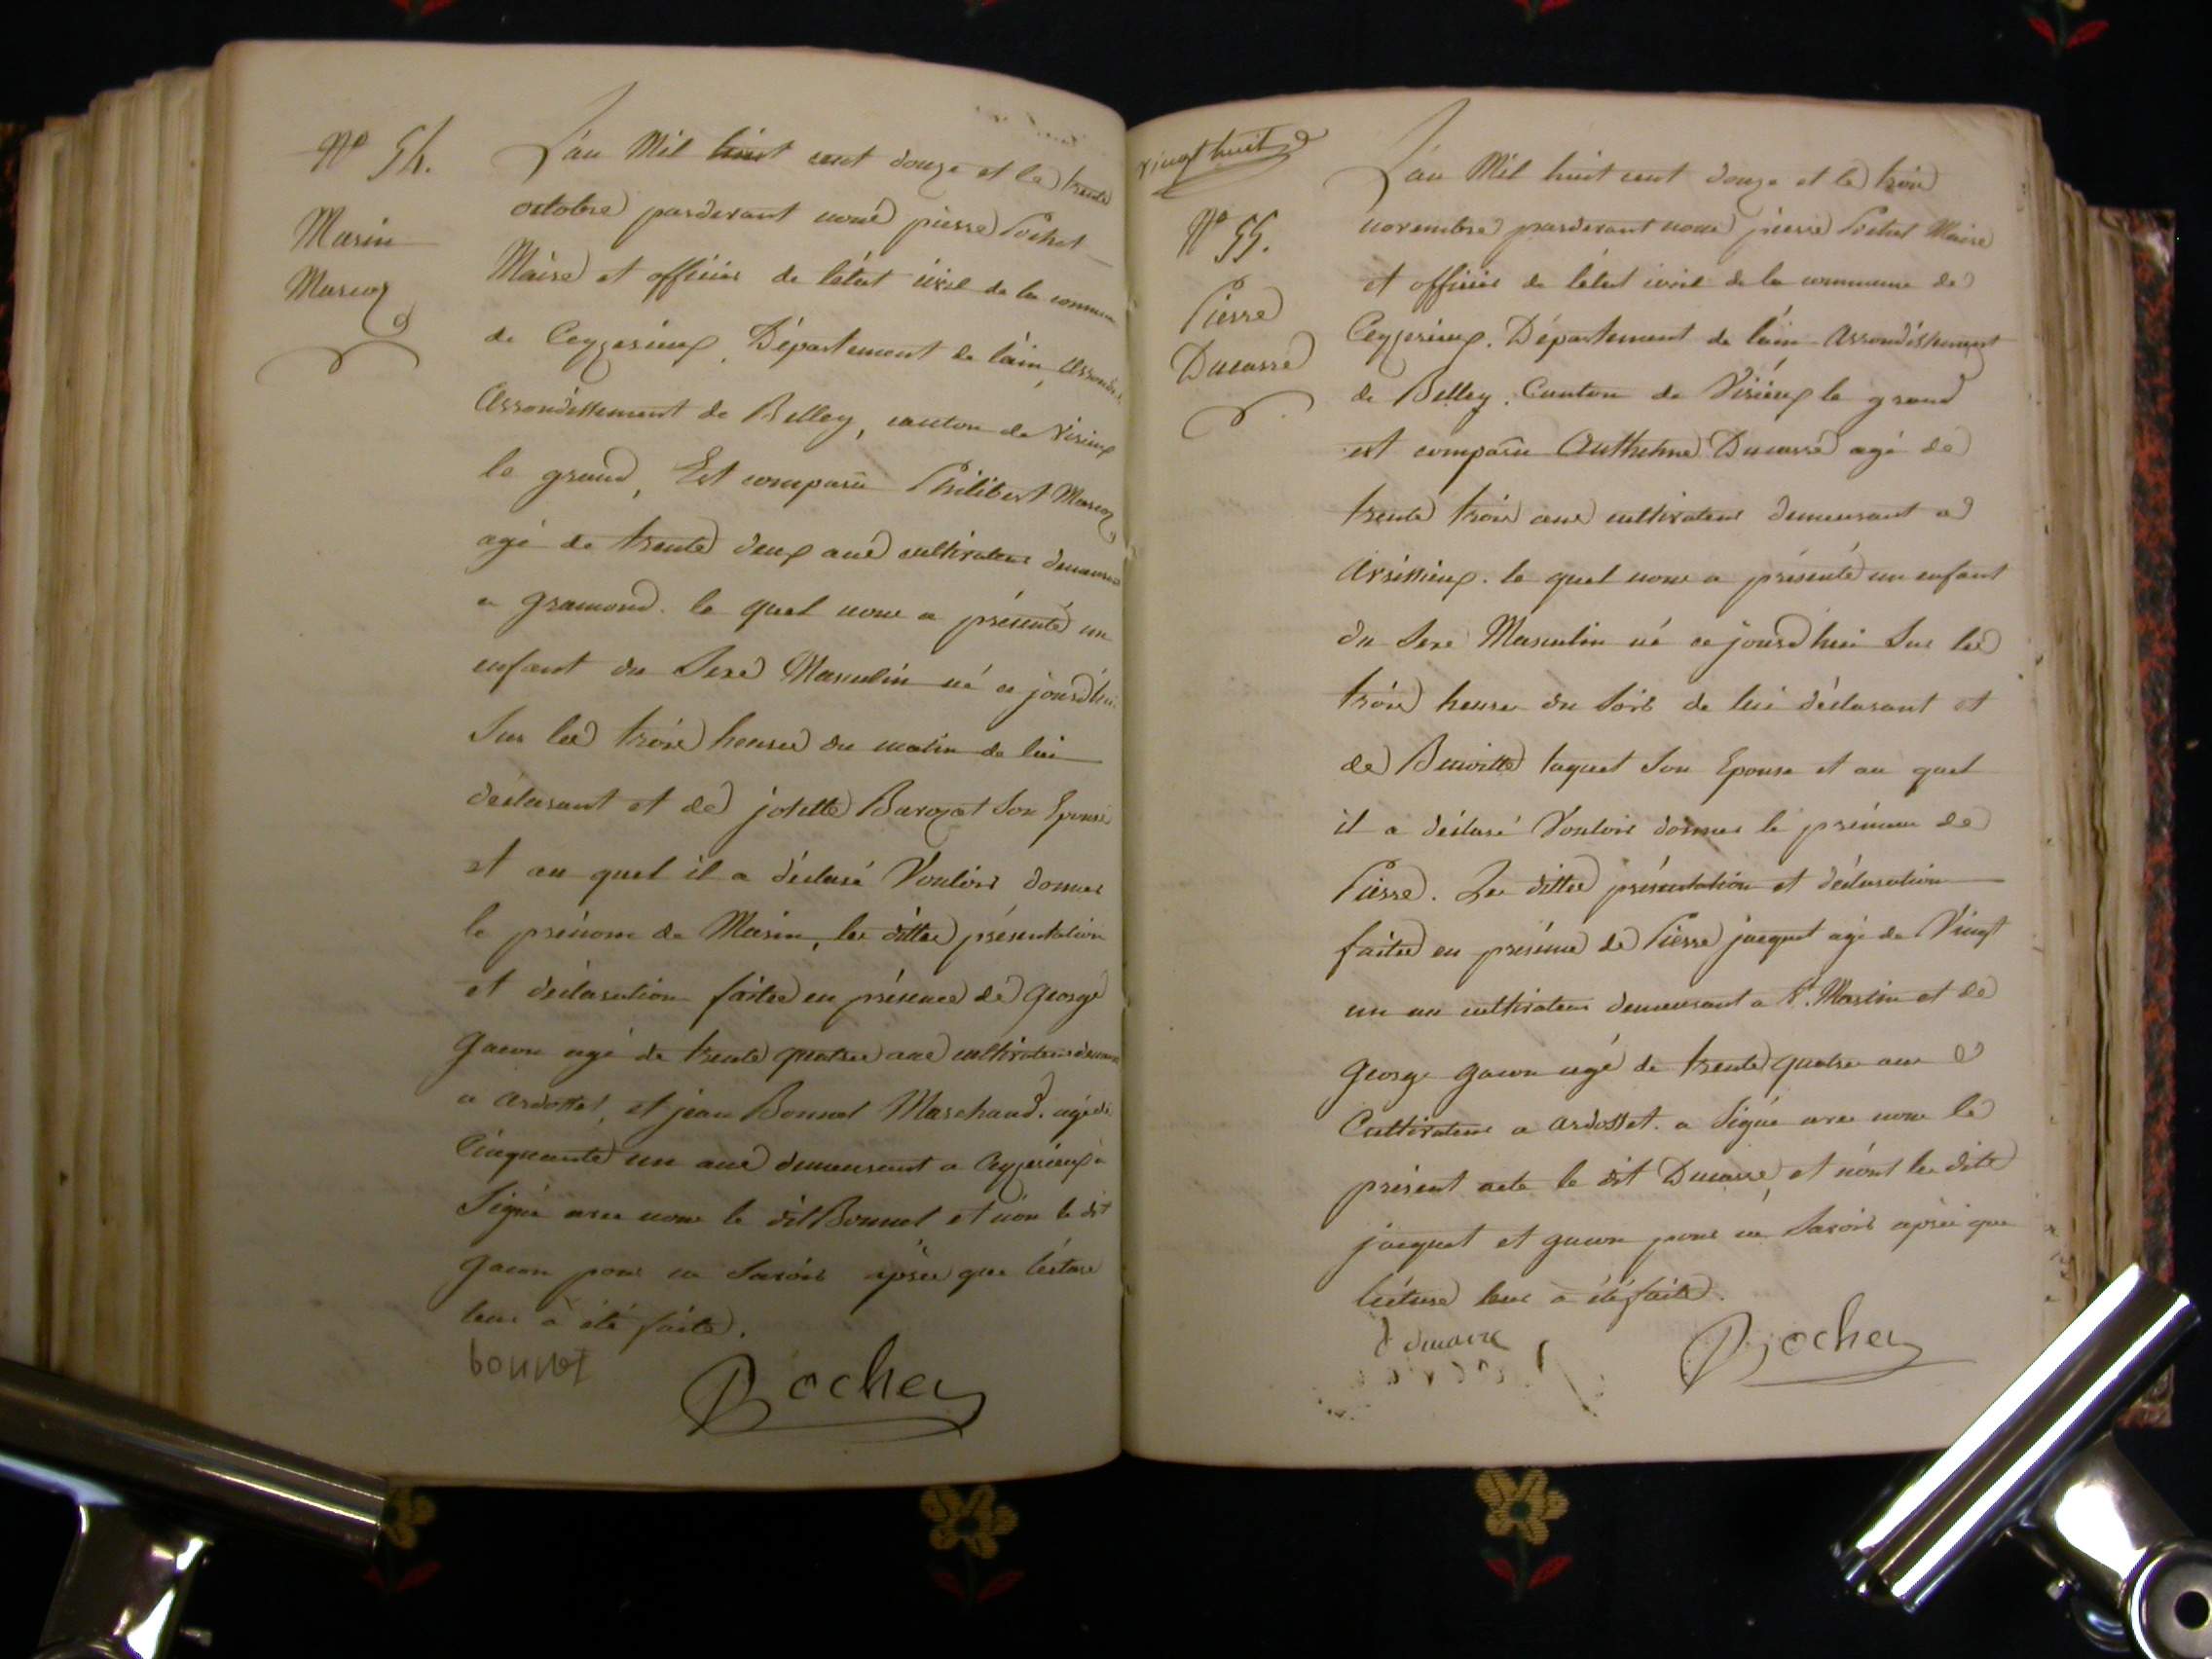 N° 54.
Marin
Marcoz
L'an Mil huit cent douze et le trente
octobre pardevant nous pierre Pochet
Maire et officier de l'état civil de la commune
de Ceyzerieux, Département de l'ain, Arrondis
Arrondissement de Belley, canton de Virieux
le grand, Est comparû Philibert Marcoz
agé de trente deux ans cultivateur demeurant
a gramond. le quel nous a présenté un
enfant du Sexe Masculin né ce jourd'hui
Sur les trois heures du matin de lui
déclarant et de josette Barozat Son Epouse
et au quel il a déclaré Vouloir donner
le prénom de Marin, les dittes présentation
et déclaration faites en présence de George
gacon agé de trente quatre ans cultivateur demeurant
a ardosset, et jean Bonnet Marchand. agé de
Cinquante un ans demeurant a Ceyzerieux a
Signé avec nous le dit Bonnet et non le dit
gacon pour ne Savoir après que lécture
leur à été faite.
bonnet
Pochet
vingt huit
N° 55.
Pierre
Ducarre
L'an Mil huit cent douze et le trois
novembre pardevant nous pierre Pochet Maire
et officier de l'état civil de la commune de
Ceyzerieux. Département de l'ain Arrondissement
de Belley. Canton de Virieux le grand
est comparû Anthelme Ducarre agé de
trente trois ans cultivateur demeurant a
Avrissieux. le quel nous a présenté un enfant
du Sexe Masculin né ce jourd'hui Sur les
trois heures du Soir de lui déclarant et
de Benoitte jaquet Son Epouse et au quel
il a déclaré Vouloir donner le prénom de
Pierre. Les dittes présentation et déclaration
faites en présence de Pierre jacquet agé de Vingt
un an cultivateur demeurant a St. Martin et de
George gacon agé de trente quatre ans
Cultivateur a ardosset. a Signé avec nous le
présent acte le dit Ducarre, et n'ont les dits
jacquet et gacon pour ne Savoir après que
lécture leur a été faite.
d ducarre
Pochet